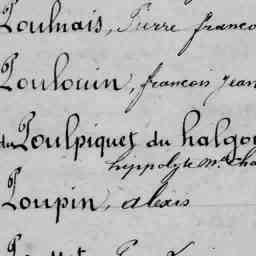 Poulnais, Pierre franco
Poulouin, francois jean
du Poulpiquet du halgou
hippolyte m.ie Cha
Poupin, alexis